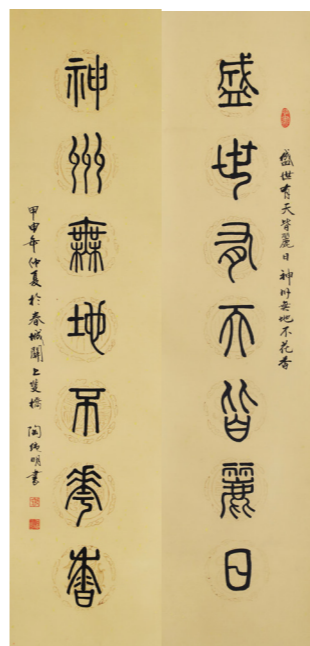 盛世有天皆麗日
盛世有天皆麗日神州無地不花香
神州無地不華香
甲申年仲夏於春城關上雙橋 陶 明書